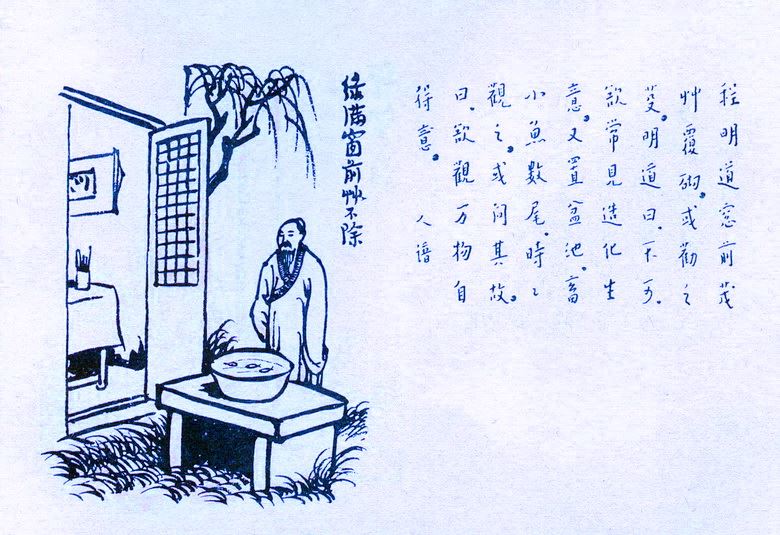 程明道窓前茂
艸覆砌。或勸之
芟。明道曰。不可。
欲常見造化生
意。又置盆池。畜
小魚數尾。時々
觀之。或問其故。
曰。欲觀万物自
得意。 人譜
綠滿窗前艸不除